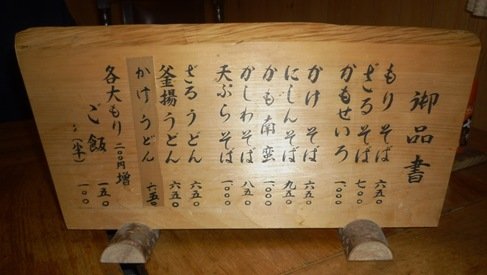 御品書
もりそば 六五〇
ざるそば 七〇〇
かもせいろ 一〇〇〇
かけそば 六五〇
にしんそば 九五〇
かも南蛮 一〇〇〇
かしわそば 八五〇
天ぷらそば 一〇〇〇
ざるうどん 六五〇
釜揚うどん 六五〇
かけうどん 六五〇
各大もり 二〇〇円増
ご飯 一五〇
〃 (半) 一〇〇